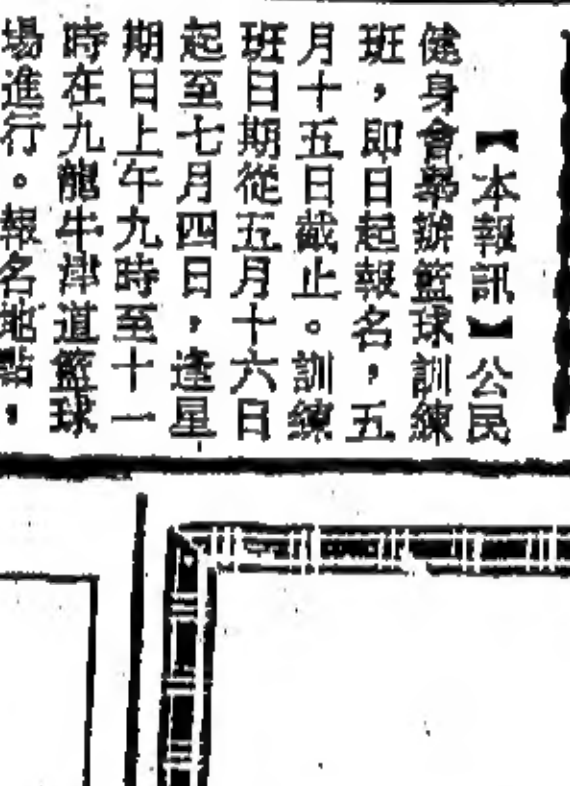 【本報訊】公民
健身會舉辦籃球訓練
班，即日起報名，五
月十五日截止。訓練
班日期從五月十六日
起至七月四日，逢星
期日上午九時至十一
時在九龍牛津道籃球
場進行。報名地點，